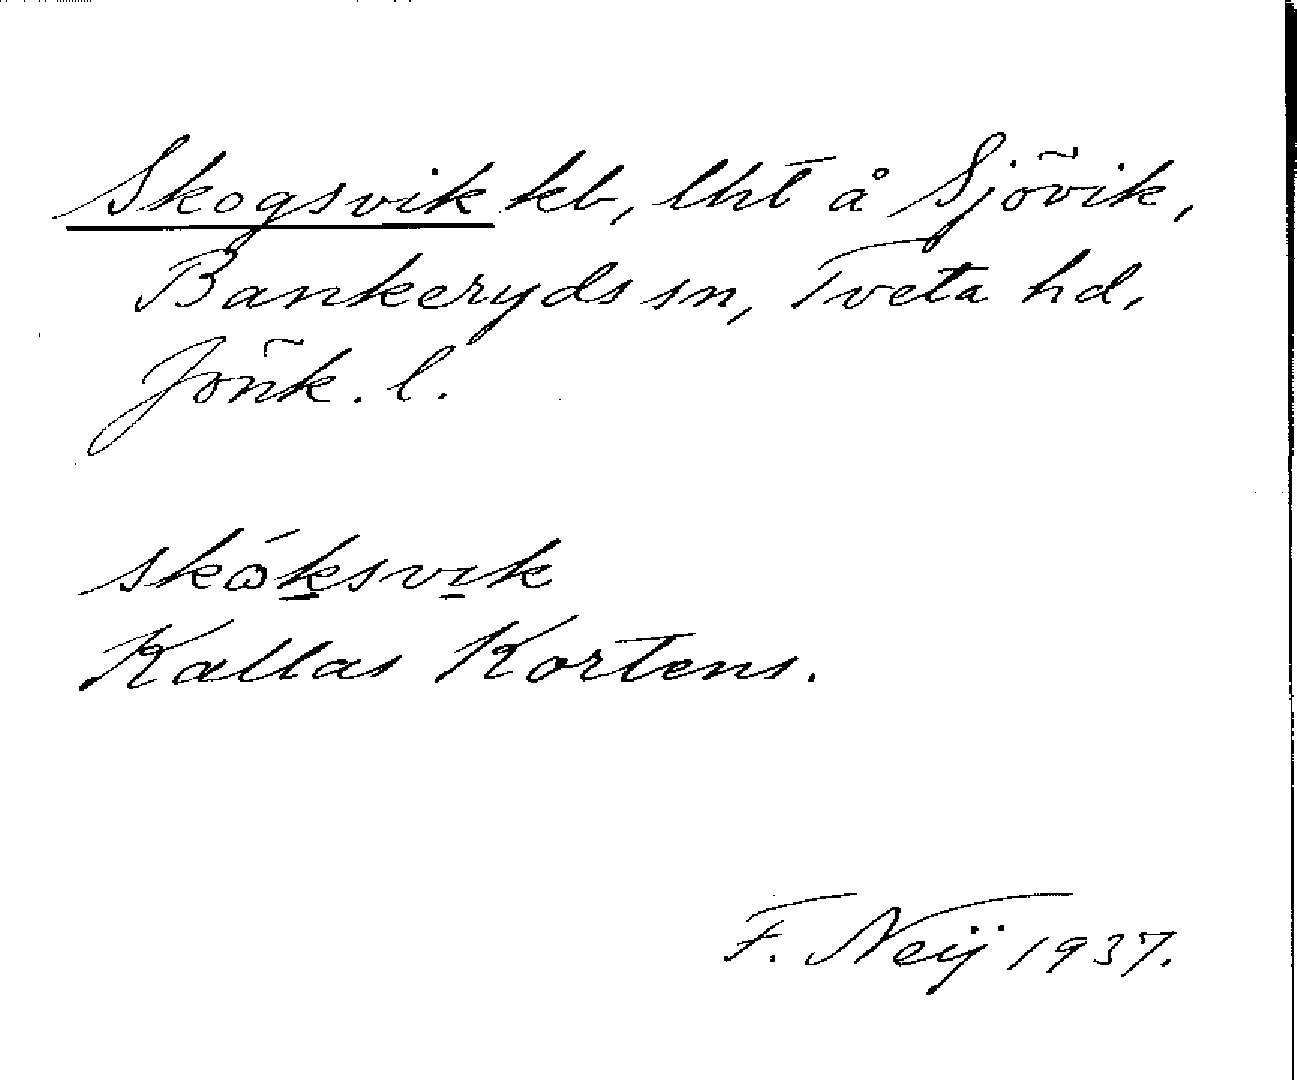 Skogsvik kb, lht å Sjövik,
Bankeryds sn, Tveta hd,
Jönk. l.
skɷ́ksvik
Kallas Kortens.
F. Neij 1937.